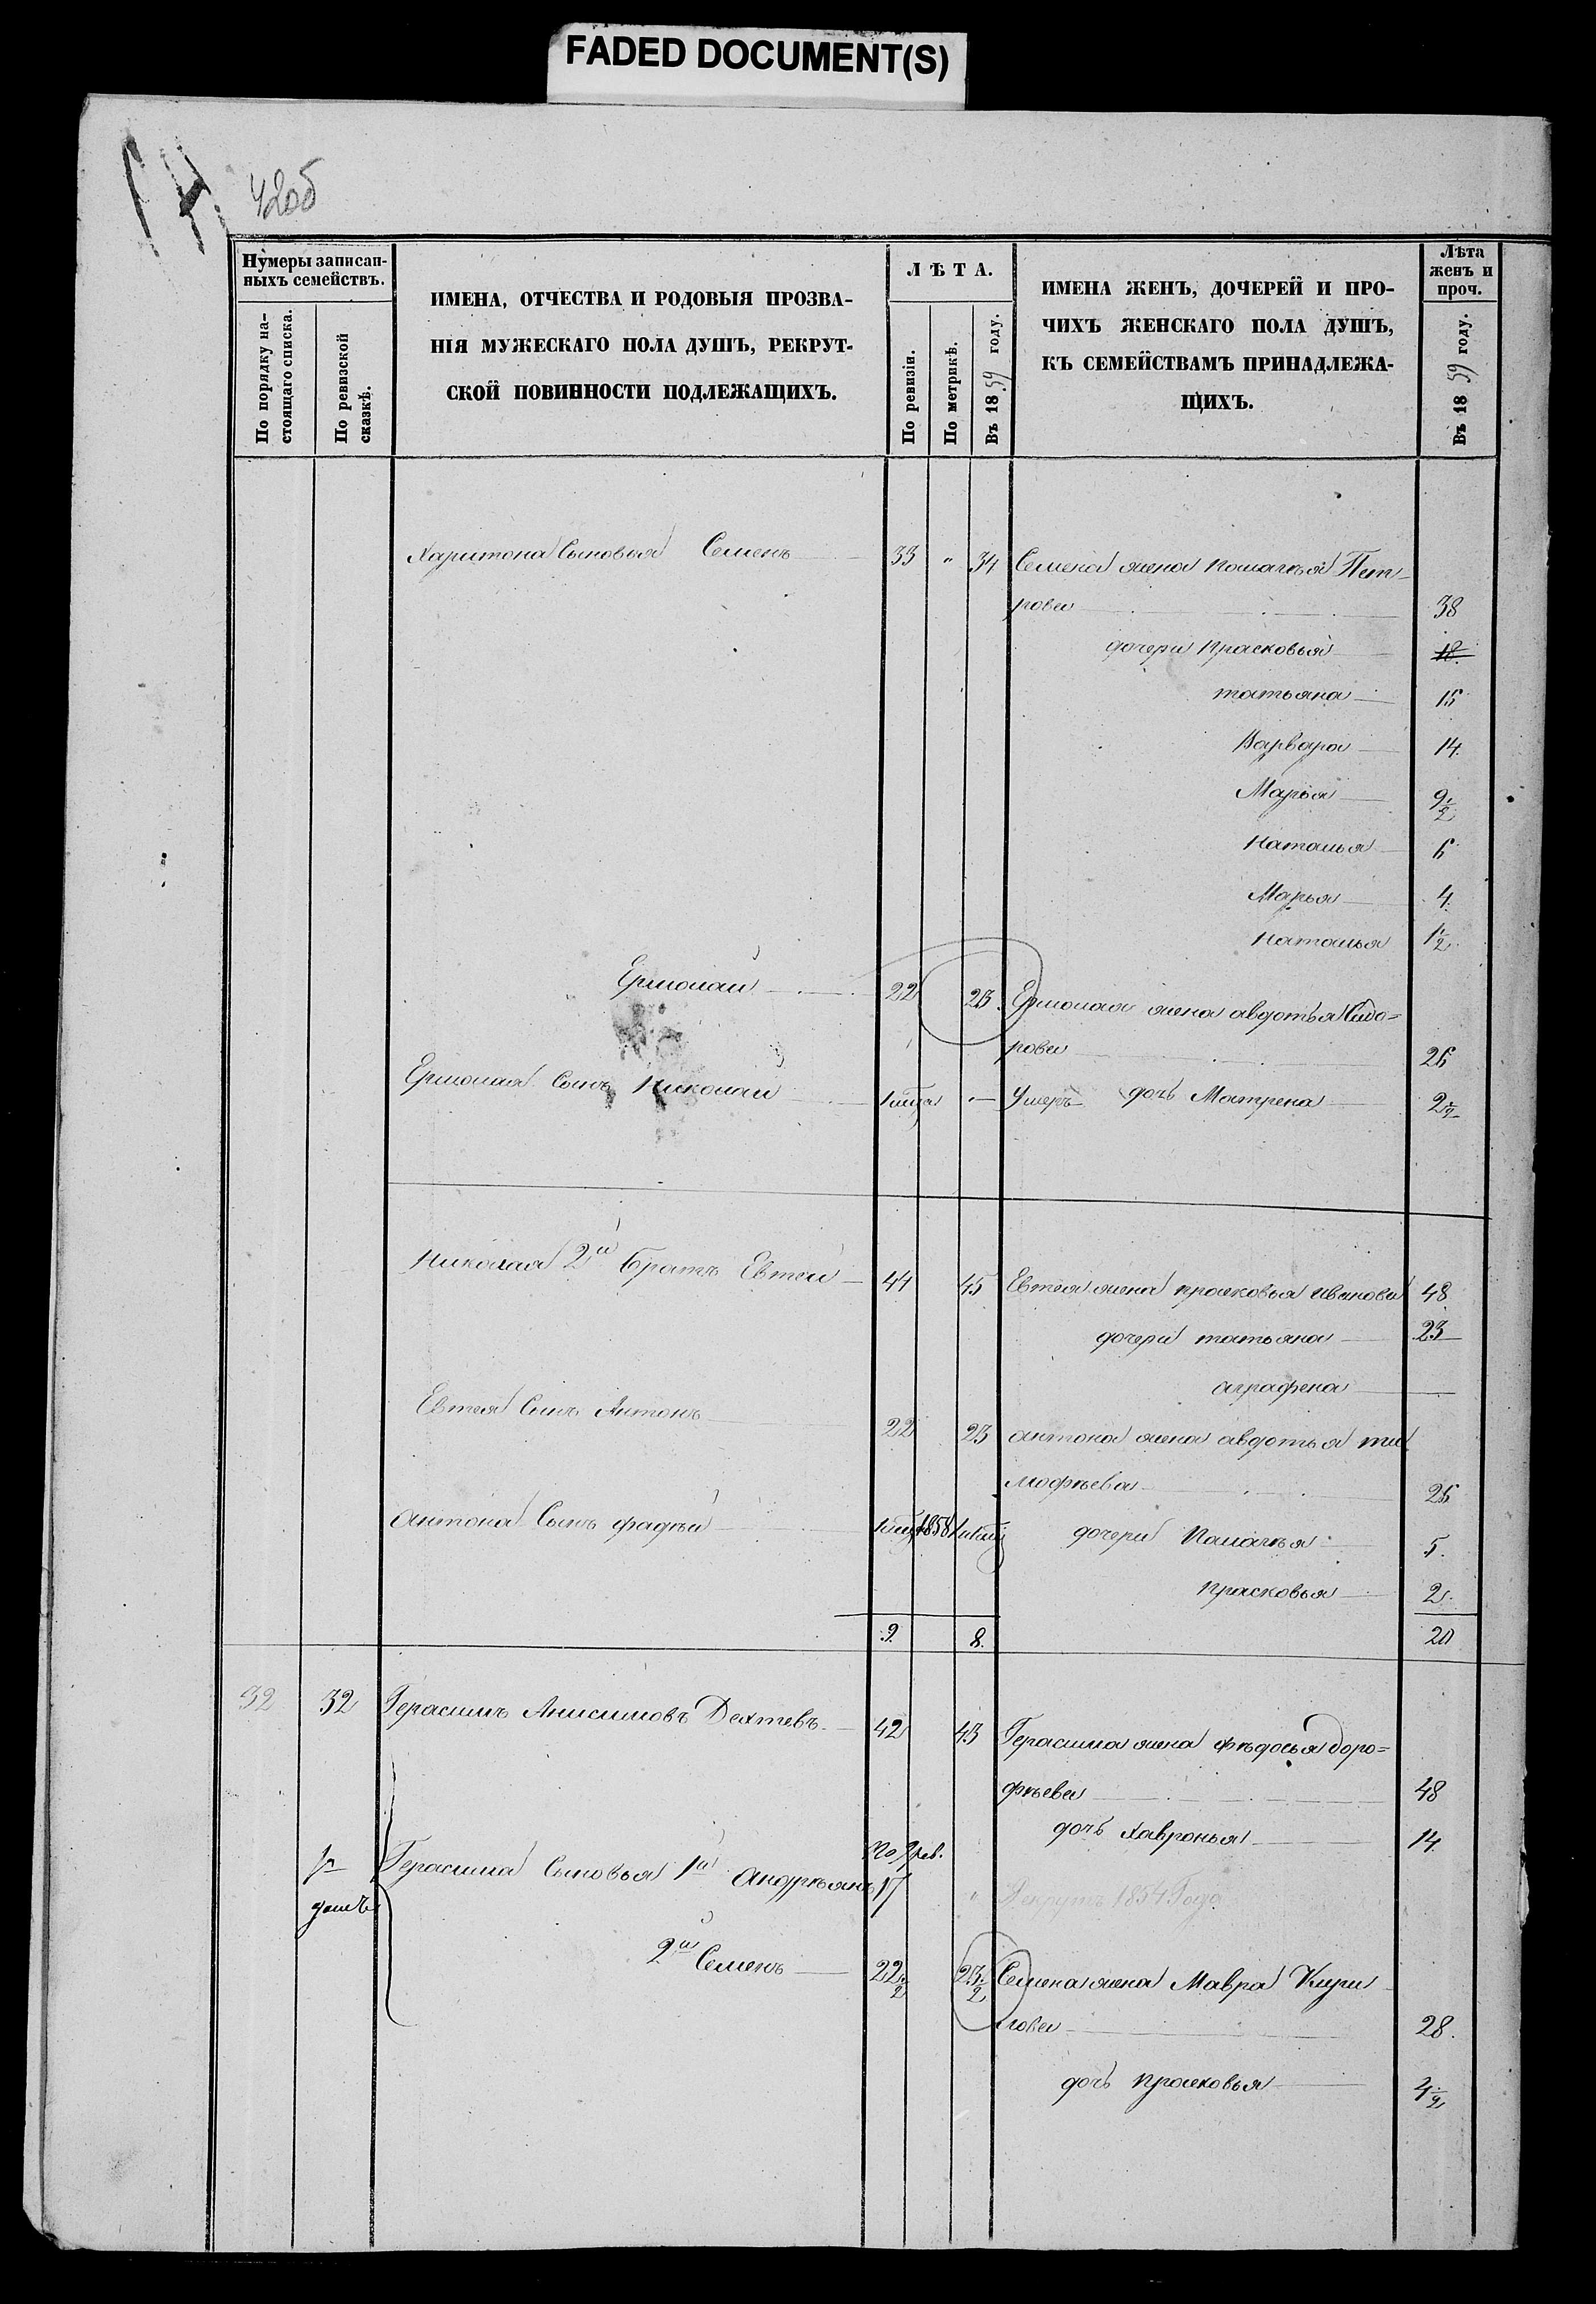 FADED DOCUMENT(S)
42об
Нумеры записан-
ныхъ семействъ.
По порядку на-
стоящаго списка.
По ревизской
сказкѣ.
ИМЕНА, ОТЧЕСТВА И РОДОВЫЯ ПРОЗВА-
НІЯ МУЖЕСКАГО ПОЛА ДУШЪ, РЕКРУТ-
СКОЙ ПОВИННОСТИ ПОДЛЕЖАЩИХЪ.
ЛѢТА.
По ревизіи.
По метрикѣ.
Въ 1859 году.
ИМЕНА ЖЕНЪ, ДОЧЕРЕЙ И ПРО-
ЧИХЪ ЖЕНСКАГО ПОЛА ДУШЪ,
КЪ СЕМЕЙСТВАМЪ ПРИНАДЛЕЖА-
ЩИХЪ.
Лѣта
женъ и
проч.
Въ 1859 году.
Харитона Сыновья Семенъ 33 " 34 Семена жена Палагья Пет-
рова 38
дочери Прасковья 18
татьяна 15
Варвара 14
Марья 9 1/2
Наталья 6
Марья 4
Наталья 1 1/2
Ермолай 22 23 Ермолая жена авдотья Сидо=
рова 26
Ермолая Сынъ Николай — Умеръ дочь Матрена 2 1/2
Николая 2й братъ Евтей 44 45 Евтея жена прасковья иванова 48
дочери татьяна 23
аграфена —
Евтея Сынъ Антонъ 22 23 антона жена авдотья ти
мофѣева 26
антона Сынъ фадѣй 1858 дочери Палагья 5.
прасковья 2.
9. 8. 20
32 32 Герасимъ Анисимовъ Дехтевъ 42 43 Герасима жена фѣдосья доро=
фѣева 48
дочь Хавронья 14
Герасима Сыновья 1й андреянъ 17 " Рекрутъ 1854 Года
2й Семенъ 22 1/2 23 1/2 Семена жена Мавра Кири
лова 28.
дочь прасковья 4 1/2